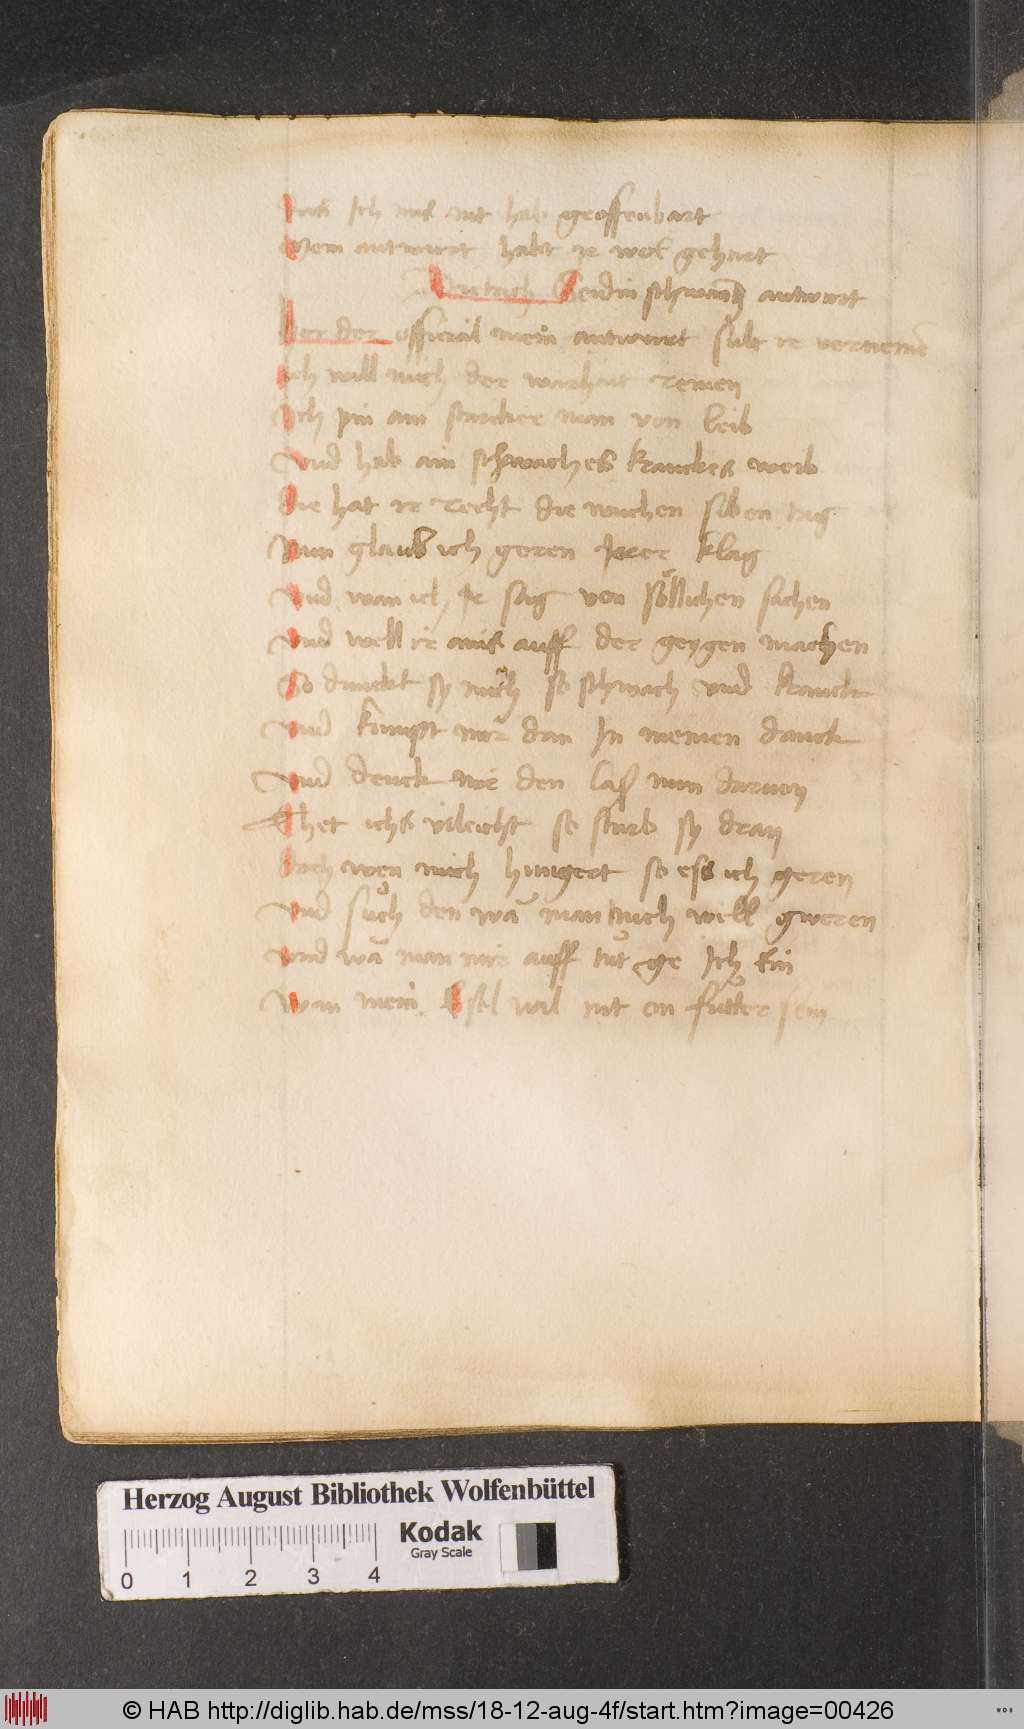 Das Ich mit hab geoffenbart
Mein antwurt habt ir wol gehart
Dietrich Seidinschwantz antwurt
Her der official mein antwurt sult ir verneme
Ich will mich der warhait remen
Ich pin ain starcker man von leib
Vnd hab ain schwaches kranckes weib
Die hat ir recht die wuchen siben tag
Nun glaub ich geren Irer klag
Vnd wan ich Ir sag von söllichen sachen
Vnd well ir ains auff der geygen machen
So dunckt sy mich so schwach vnd kranck
Vnd kumpt mir dan In meinen danck
Vnd denck mir den las nun daruon
Thet ichs vileicht so sturb sy dran
Doch wen mich hungert so ess ich geren
Vnd sůch den wa man mich well gweren
Vnd wa man mir auff tůt ge Ich Ein
Wan mein Esel wil nit on fůtter sein
Herzog August Bibliothek Wolfenbüttel
Kodak
Gray Scale
0 1 2 3 4
© HAB http://diglib.hab.de/mss/18-12-aug-4f/start.htm?image=00426